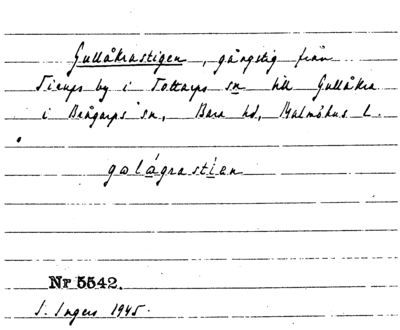 Gullåkrastigen, gångstig från
Tirups by i Tottarps sn till Gullåkra
i Brågarps sn, Bara hd, Malmöhus l.
gωlágrastíen
Nr 5542.
I. Ingers 1945.